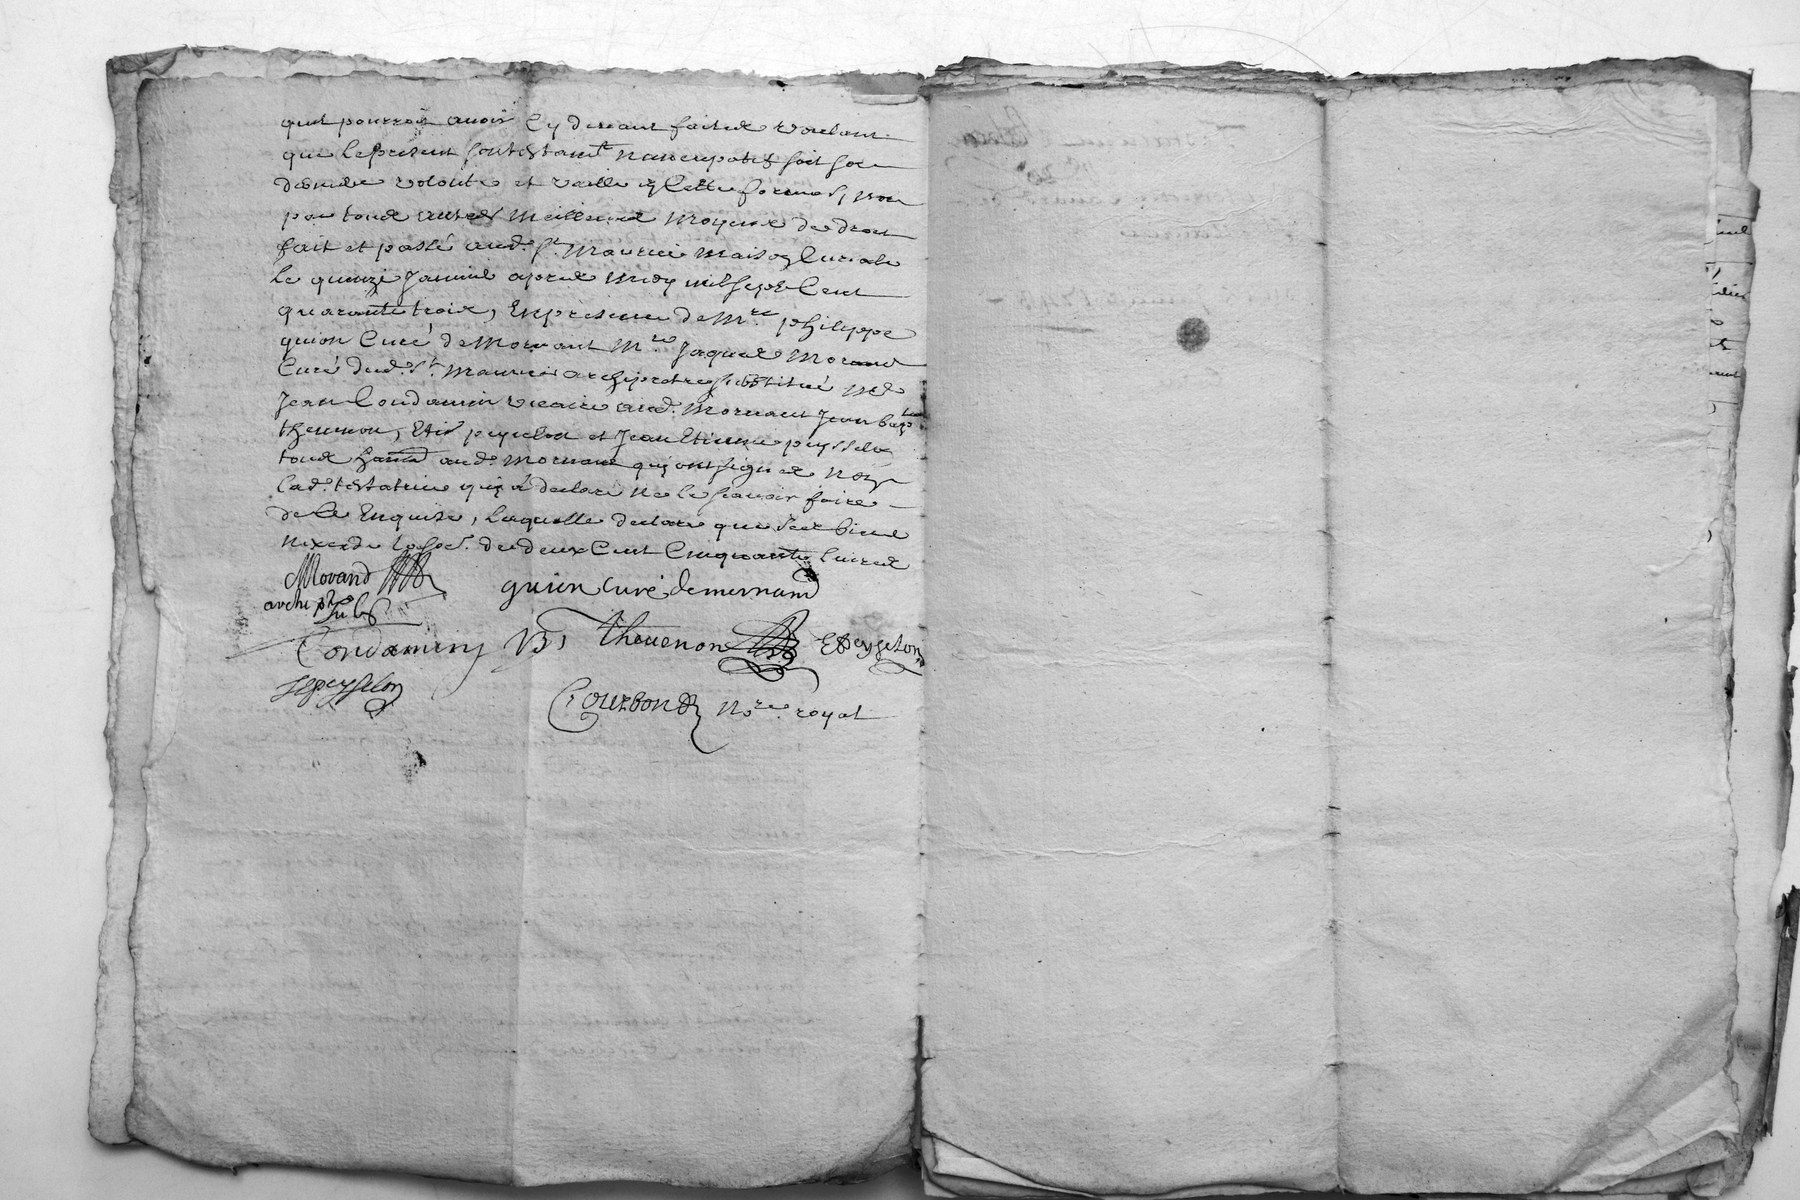 quel pourroit avoir Cy devant faites voulant
que le present son testamt. nuncupatif soit sa
derniere volonté et vaille en cette forme, sinon
par tous autres meilleurs moyens de droit
fait et passé aud. st. Maurice maison Curiale
le quinze Janvier apres midy mil sept Cent
quarante trois, En presence de Mre. philippe
guion Curé de Mornant Mre. Jaques Morand
Curé dud. st. Maurice archipretre substitué Me
Jean Condamin vicaire aud. Mornant Jean bapte.
thevenon, Etie peysselon et Jean Etienne peysselon
tous hants aud. Mornant qui ont signés non
lad. testatrice qui a declaré ne le sçavoir faire
de ce Enquise, laquelle declare que ses biens
n'exede la so. de deux Cent Cinquante livres
Morand
archi ptre sub
guion curé de mornand
Condamin V
JB thevenon
E peyselon
JE peysselon
Courbon Nore. royal